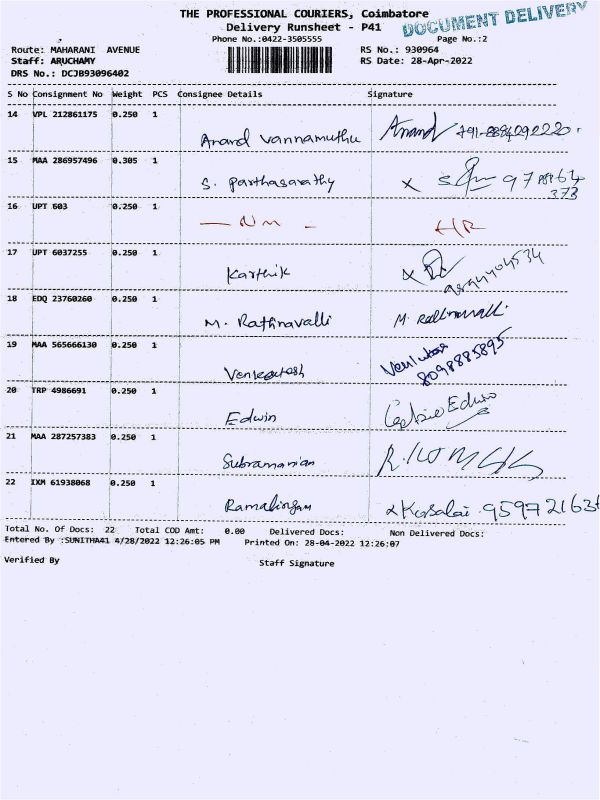 THE PROFESSIONAL COURIERS, Coimbatore
DOCUMENT DELIVERY
Delivery Runsheet - P41
Phone No.:0422-3505555 Page No.:2
Route: MAHARANI AVENUE RS No.: 930964
Staff: ARUCHAMY RS Date: 28-Apr-2022
DRS No.: DCJB93096402
S No Consignment No Weight PCS Consignee Details Signature
14 VPL 212861175 0.250 1
Anand Vannamuthu Anand
15 MAA 286957496 0.305 1
S. Parthasarathy x
373
16 UPT 603 0.250 1
— NM — HR
17 UPT 6037255 0.250 1
Karthik x
18 EDQ 23760260 0.250 1
M. Rathnavalli M.
19 MAA 565666130 0.250 1
Venkatesh
8098885895
20 TRP 4986691 0.250 1
Edwin Edwin
21 MAA 287257383 0.250 1
Subramanian
22 IXM 61938068 0.250 1
Ramalingam x Kosalai
Total No. Of Docs: 22 Total COD Amt: 0.00 Delivered Docs: Non Delivered Docs:
Entered By :SUNITHA41 4/28/2022 12:26:05 PM Printed On: 28-04-2022 12:26:07
Verified By Staff Signature